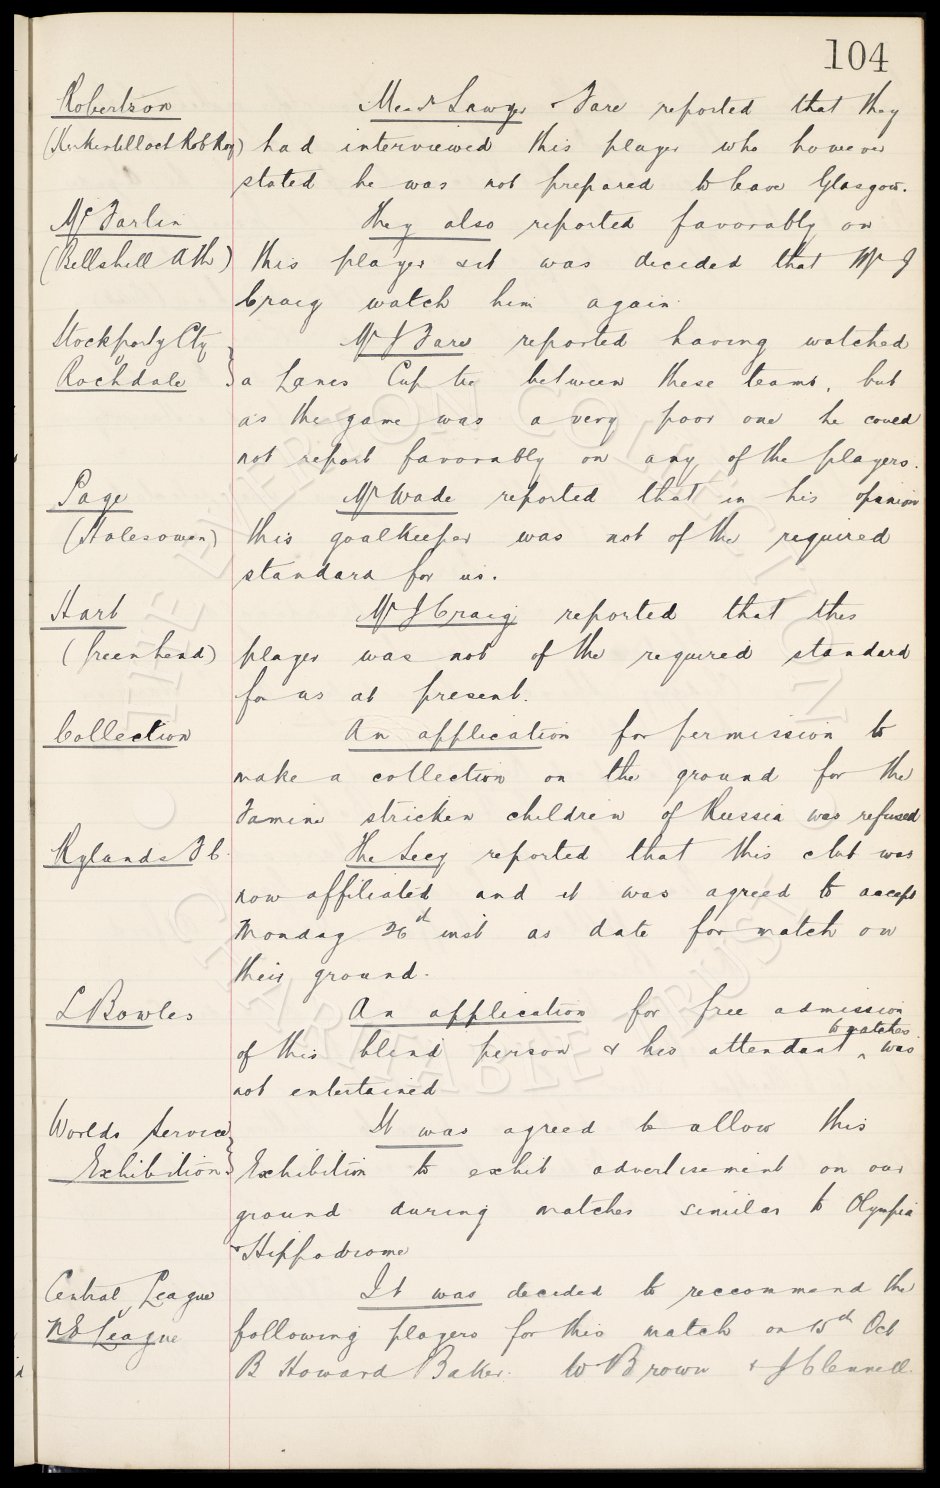 104
Robertson Messrs Sawyer & Fare reported that they
(Kirkintilloch Rob Roy) had interviewed this player who however
stated he was not prepared to leave Glasgow.
Mc Farlin They also reported favorably on
(Bellshill Ath) this player & it was decided that Mr J
Craig watch him again
Stockport v Cty Mr J Fare reported having watched
Rochdale a Lancs Cup tie between these teams, but
as the game was a very poor one he coued
not report favorably on any of the players.
Page Mr Wade reported that in his opinion
(Halesowen) this goalkeeper was not of the required
standard for us.
Hart Mr J Craig reported that this
(Greenhead) player was not of the required standard
for us at present.
Collection An application for permission to
make a collection on the ground for the
Famine stricken children of Russia was refused
Rylands F C. The Secy reported that this club was
now affiliated and it was agreed to accept
Monday 26th inst as date for match on
their ground.
L Bowles An application for free admission
of this blind person & his attendant to matches was
not entertained
Worlds Service It was agreed to allow this
Exhibition Exhibition to exhibit advertisement on our
ground during matches similar to Olympia
& Hippodrome
Central League It was decided to reccommend the
v N E League following players for this match on 15th Oct
B Howard Baker. W Brown & J Clennell.
THE EVERTON COLLECTION
CHARITABLE TRUST